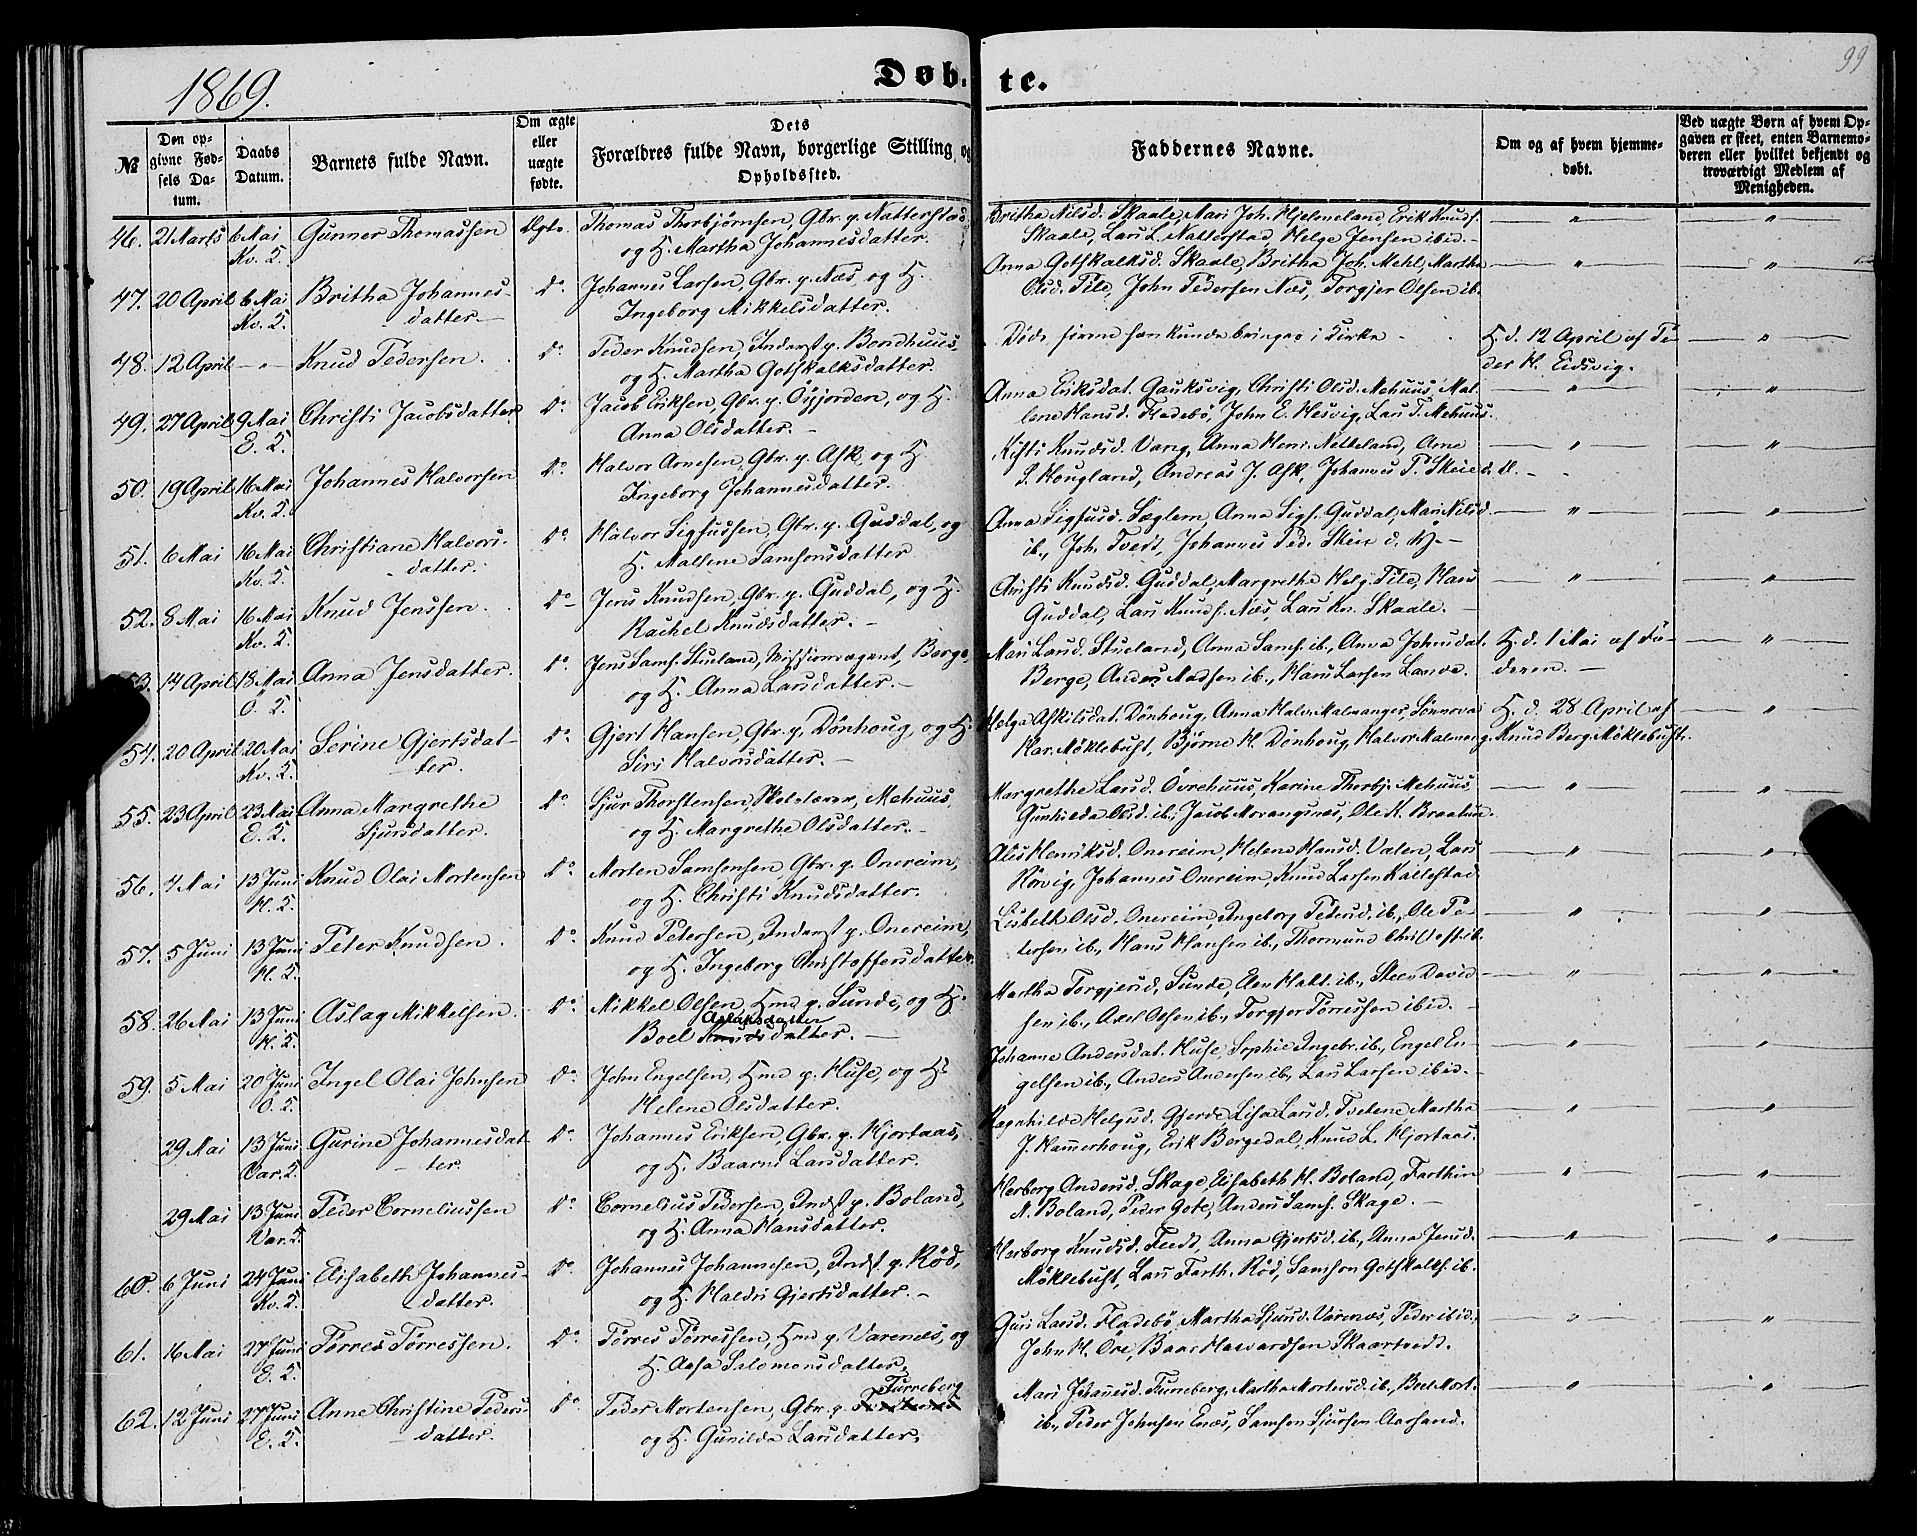 99
1869.
Døb- te.
№
Den opgivne Fødsels Datum.
Daabs Datum.
Barnets fulde Navn.
Om ægte eller uægte fødte.
Dets Forældres fulde Navn, borgerlige Stilling og Opholdssted.
Faddernes Navne.
Om og af hvem hjemmedøbt.
Ved uægte Børn af hvem Opgaven er skeet, enten Barnemoderen eller hvilket bekjendt og troværdigt Medlem af Menigheden.
46. 21 Marts 6 Mai Gunner Thomassen Ægte. Thomas Thorbjørnsen, Gbr. p. Natterstad Britha Nilsd. Skaale, Mari Joh. Hjelmeland, Erik Knuds. — " — — " —
Kv. K. og H. Martha Johannesdatter. Skaale, Lars L. Natterstad, Helge Jensen ibid. —
47. 20 April 6 Mai Britha Johannes- do. Johannes Larsen, Gbr. p. Næs, og H. Anna Gotskalksd. Skaale, Britha Joh. Mehl, Martha — " — — " —
Kv. K. datter. — Ingeborg Mikkelsdatter. Olsd. Tile, John Pedersen Næs, Torgjer Olsen ib.
48. 12 April — " — Knud Pedersen. do. Peder Knudsen, Inderst p. Bondhuus, Døde førend han kunde bringes i Kirke H. d. 12 April af Pe- — " —
og H. Martha Gotskalksdatter. der H. Eidsvig.
49. 27 April 9 Mai Christi Jacobsdatter do. Jacob Eriksen, Gbr. p. Øyjorden, og H. Anna Eriksdat. Gauksvig, Christi Olsd. Mehuus, Ma- — " — — " —
E. K. Anna Olsdatter. — lene Hansd. Fladebø, John E. Hesvig, Lars T. Mehuus.
50. 19 April 16 Mai Johannes Halvorsen do. Halvor Arnesen, Gbr. p. Ask, og H. Kisti Knudsd. Vang, Anna Hens. Netteland, Arne — " — — " —
Kv. K. Ingeborg Johannesdatter. P. Hougland, Andreas J. Ask, Johannes P. Skeie d. æ. —
51. 6 Mai 16 Mai Christiane Halvors- do. Halvor Sigfussen, Gbr. p. Guddal, og Anna Sigfusd. Sæglem, Anna Sigf. Guddal, Mari Nilsd. — " — — " —
Kv. K. datter. H. Mallene Samsonsdatter ib., Joh. Tvedt, Johannes Ped. Skeie d. y. —
52. 8 Mai 16 Mai Knud Jenssen. do. Jens Knudsen, Gbr. p. Guddal, og H. Christi Knudsd. Guddal, Margrethe Helg. Tile, Hans — " — — " —
Kv. K. Rachel Knudsdatter. — Guddal, Lars Knuds. Næs, Lars Kn. Skaale. —
53. 14 April 18 Mai Anna Jensdatter. do. Jens Sams. Stueland, Missionsagent, Berge, Mari Larsd. Stueland, Anna Sams. ib., Anna Johnsdat. H. d. 1 Mai af Fa- — " —
Ö. K. og H. Anna Larsdatter. — Berge, Anders Madsen ib., Hans Larsen Lande. deren. —
54. 20 April 20 Mai Serine Gjertsdat- do. Gjert Hansen, Gbr. p. Dönhoug, og H. Helga Askilsdat. Dönhoug, Anna Halv. Malmanger, Sönnova H. d. 28 April af — " —
Kv. K. ter. Siri Halvorsdatter. — Har. Möklebust, Bjørne H. Dönhoug, Halvor Malmang. Knud Berg Möklebust.
55. 23 April 23 Mai Anna Margrethe do. Sjur Thorstensen, Skolelærer, Mehuus, Margrethe Larsd. Övrehuus, Karine Thorbj. Mehuus — " — — " —
E. K. Sjursdatter. og H. Margrethe Olsdatter. — Gunhilda Olsd. ib., Jacob Morangsnæs, Ole K. Braatun.
56. 7 Mai 13 Juni Knud Olai Mortensen do. Morten Samsonsen, Gbr. p. Onereim, Alis Henriksd. Onereim, Helene Hansd. Valen, Lars — " — — " —
H. K. og H. Christi Knudsdatter. Rörvig, Johannes Onereim, Knud Larsen Kallestad.
57. 5 Juni 13 Juni Peter Knudsen. do. Knud Petersen, Inderst p. Onereim, Lisbeth Olsd. Onereim, Ingeborg Petersd. ib., Ole Pe- — " — — " —
H. K. og H. Ingeborg Christoffersdatter. tersen ib., Hans Hansen ib., Thormund Christoff. ib.
58. 26 Mai 13 Juni Aslag Mikkelsen. do. Mikkel Olsen, Hmd p. Sunde, og H. Martha Torgjersd. Sunde, Elen Matt. ib., Steen David- — " — — " —
H. K. Boel Aslaksdatter. — sen ib., Axel Olsen ib., Torgjer Tørressen ibid. —
59. 5 Mai 20 Juni Ingel Olai Johnsen do. John Engelsen, Hmd p. Huse, og H. Johanne Andersdat. Huse, Sophie Ingebr. ib., Engel En- — " — — " —
Ö. K. Helene Olsdatter. gelsen ib., Anders Andersen ib., Lars Larsen ibid. —
29 Mai 13 Juni Gurine Johannesdat- do. Johannes Eriksen, Gbr. p. Hjortaas, Ragnhilde Helgesd. Gjerde, Lisa Larsd. Tvetene, Martha — " — — " —
Var. K. ter. og H. Baarni Larsdatter. J. Hammerhoug, Erik Bergedal, Knud L. Hjortaas.
29 Mai 13 Juni Peder Corneliussen do. Cornelius Pedersen, Indst p. Boland, Herborg Andersd. Skage, Elisabeth H. Boland, Farthin — " — — " —
Var. K. og H. Anna Hansdatter. N. Boland, Peder Gote, Anders Sams. Skage. —
60. 6 Juni 24 Juni Elisabeth Johannes- do. Johannes Johannesen, Indst p. Rød, Herborg Knudsd. Tvedt, Anna Gjertsd. ib., Anna Jensd. — " — — " —
Kv. K. datter. og H. Haldri Gjertsdatter. — Möklebust, Lars Farth. Rød, Samson Gotskalks. ib.
61. 16 Mai 27 Juni Tørres Tørressen. do. Tørres Tørressen, Hmd p. Varenæs, og Guri Larsd. Fladebø, Martha Sjursd. Varenæs, Peder ibid., — " — — " —
E. K. H. Aasa Salomonsdatter. John H. Öre, Baar Havardsen Skaartvedt.
62. 12 Juni 27 Juni Anne Christine Peders- do. Peder Mortensen, Gbr. p. Furreberg Mari Johannesd. Furreberg, Martha Mortensd. ib., Boel Mort. — " — — " —
E. K. datter. og H. Gunilda Larsdatter. ib., Peder Johnsen Enæs, Samson Sjursen Aarsand.